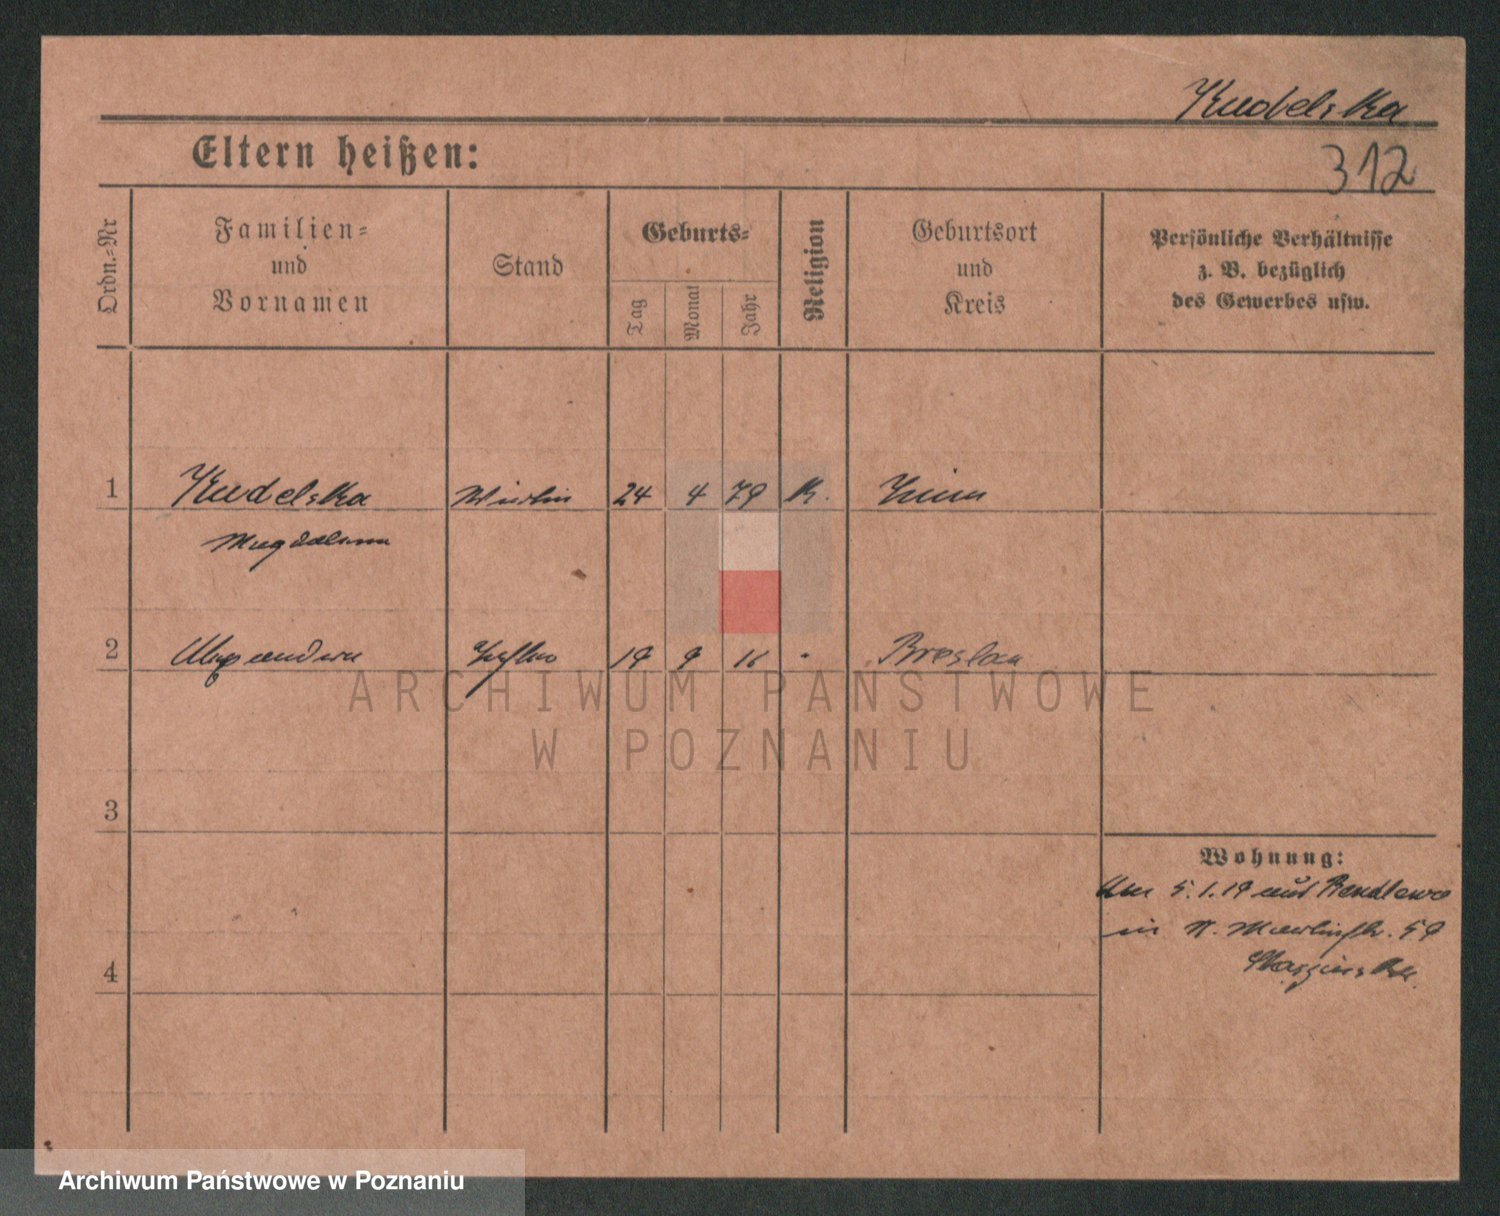 Kudelska
Eltern heißen:
312
Ordn.-Nr
Familien-
und
Vornamen
Stand
Geburts-
Tag
Monat
Jahr
Religion
Geburtsort
und
Kreis
Persönliche Verhältnisse
z. B. bezüglich
des Gewerbes usw.
1 Kudelska 24 4 79 K.
Magdalena
2 19 9 Breslau
ARCHIWUM PAŃSTWOWE
W POZNANIU
3
Wohnung:
5.1.19 aus
in St. Martinstr. 59
4
Archiwum Państwowe w Poznaniu